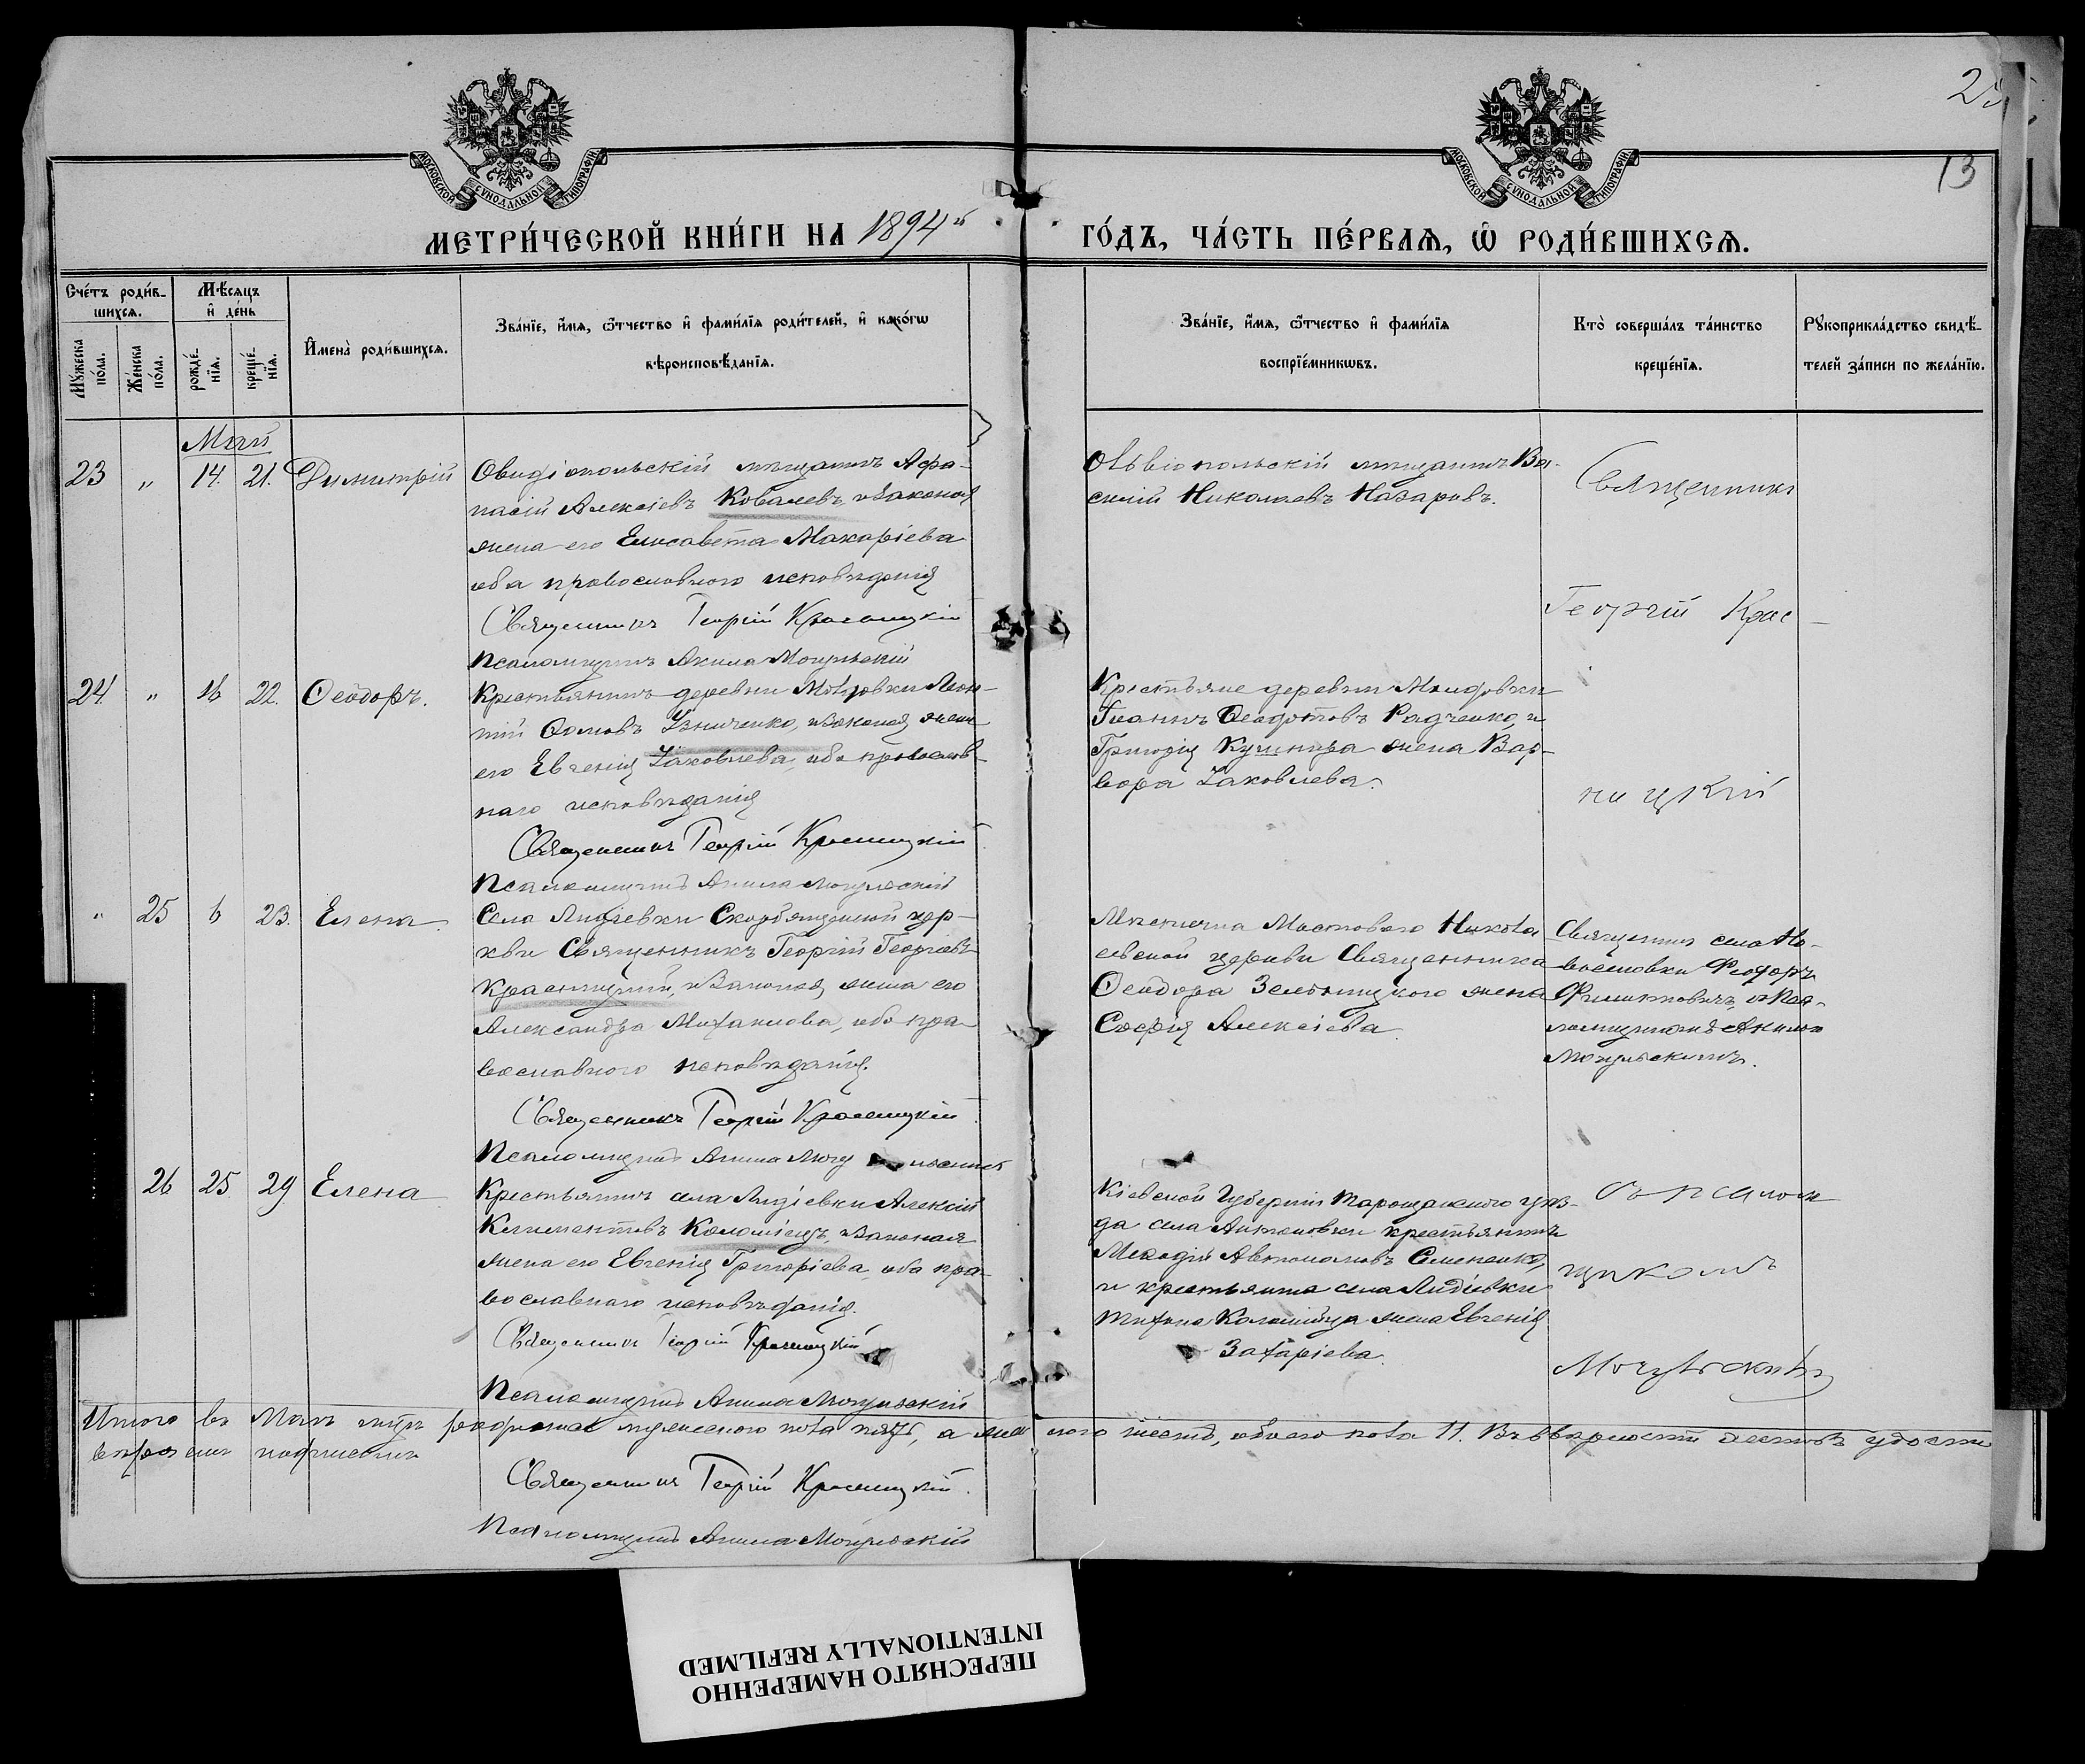 25
13
МОСКОВСКОЙ СѴНОДАЛЬНОЙ ТИПОГРАФІИ
МОСКОВСКОЙ СѴНОДАЛЬНОЙ ТИПОГРАФІИ
МЕТРИ́ЧЕСКОЙ КНИ́ГИ НА 1894й ГО́ДЪ, ЧА́СТЬ ПЕ́РВАѦ, Ѡ҆ РОДИ́ВШИХСѦ.
Сче́тъ роди́в-
шихсѧ.
Мѹ́жеска
по́ла.
Же́нска
по́ла.
Мѣ́сѧцъ
и҆ де́нь
рожде́-
нїѧ.
креще́-
нїѧ.
И҆мена̀ роди́вшихсѧ.
Зва́нїе, и҆́мѧ, ѻ҆́тчество и҆ фами́лїѧ роди́телей, и҆ како́гѡ
вѣроисповѣ́данїѧ.
Зва́нїе, и҆́мѧ, ѻ҆́тчество и҆ фами́лїѧ
воспрїе́мникѡвъ.
Кто̀ соверша́лъ та́инство
креще́нїѧ.
Рѹкоприкла́дство свидѣ́-
телей за́писи по жела́нїю.
Май
23 " 14. 21. Димитрій
Овидіопольскій мѣщанинъ Афа-
насій Алексіевъ Ковалевъ, и законая
жена его Елисавета Макаріева
оба православного исповѣданія
Священникъ Георгій Красницкій
Псаломщикъ Акила Могульскій
Ольвіопольскій мѣщанинъ Ва-
силій Николаевъ Назаровъ.
Священникъ
Георгій Крас-
ницкій
24 " 16 22. Ѳеодоръ.
Крестьянинъ деревни Леон-
тій Ѳомовъ законая жена
его Евгенія Іаковлева, оба православ-
наго исповѣданія
Священникъ Георгій Красницкій
Псаломщикъ Акила Могульскій
Крестьяне деревни
Іоаннъ Ѳеодотовъ Радченко, и
Григорія жена Вар-
вара Іаковлева.
" 25 6 23. Елена.
Села Лидіевки Скорбященской цер-
кви Священникъ Георгій Георгіевъ
Красницкій, и законая жена его
Александра Михаилова, оба пра-
вославного исповѣданія.
Священникъ Георгій Красницкій
Псаломщикъ Акила Могульскій
Мѣстечка Мостового Никола-
евской церкви Священника
Ѳеодора жена
Софія Алексіева.
Священникъ села
Феодоръ
и Пса-
ломщикомъ Акилою
Могульскимъ.
26 25 29 Елена
Крестьянинъ села Лидіевки Алексій
Климентовъ Коломіецъ, законая
жена его Евгенія Григоріева, оба пра-
вославнаго исповѣданія.
Священникъ Георгій Красницкій
Псаломщикъ Акила Могульскій
Кіевской Губерніи Таращанского уѣз-
да села крестьянинъ
Меѳодій Автономовъ Семененко,
и крестьянина села Лидіевки
Тихона Коломійца жена Евгенія
Захаріева.
съ псалом
щикомъ
Могульскимъ
Итого въ Маѣ мцѣ родилось мужеского пола пять, а жен ского шесть, обоего пола 11. Въ вѣрности чего удосто
вѣряемъ подписомъ
Священникъ Георгій Красницкій.
Псаломщикъ Акила Могульскій
ПЕРЕСНЯТО НАМЕРЕННО
INTENTIONALLY REFILMED